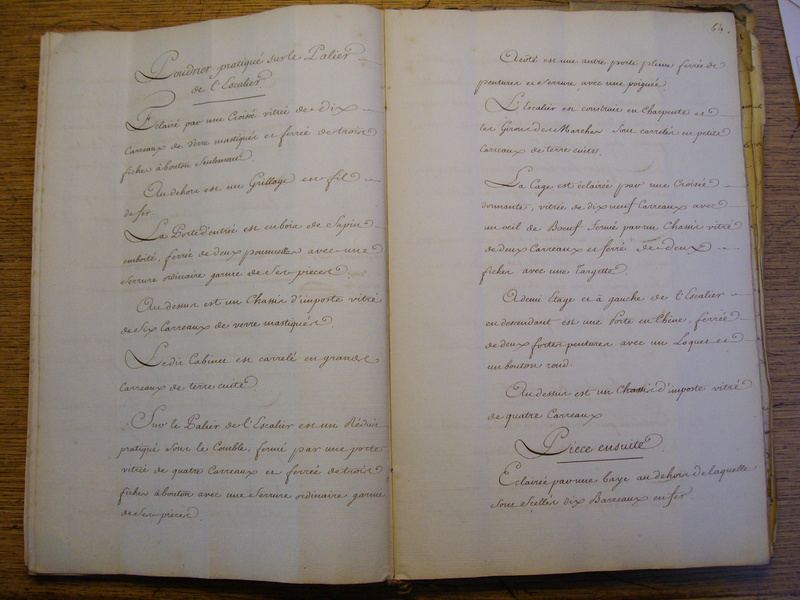 Poudrier pratiqué sur le Palier
de l'Escalier.
Eclairé par une Croisée vitrée de dix
Carreaux de verre mastiqués et ferrée de trois
fiches à bouton seulement.
Au dehors est un Grillage en fil
de fer.
La Porte d'entrée est en bois de Sapin
emboité, ferrée de deux pommelles avec une
serrure ordinaire garnie de ses pieces.
Au dessus est un Chassis d'imposte vitré
de Six Carreaux de verre mastiqués.
Ledit Cabinet est carrelé en grands
Carreaux de terre cuite.
Sur le Palier de l'Escalier est un Réduit
pratiqué sous le Comble, fermé par une porte
vitrée de quatre Carreaux et ferrée de trois
fiches à bouton avec une Serrure ordinaire garnie
de ses pieces.
64.
A côté est une autre porte pleine ferrée de
pentures et serrure, avec une poignée.
L'Escalier est construit en Charpente et
les Girons des Marches sont carrelés en petits
Carreaux de terre cuite.
La Cage est éclairée par une Croisée
dormante, vitrée de dix neuf Carreaux avec
un oeil de Boeuf fermé par un Chassis vitré
de deux Carreaux et ferré de deux
fiches avec une Targette.
A demi Etage et à gauche de l'Escalier
en descendant est une Porte en Chêne, ferrée
de deux fortes pentures avec un Loquet et
un bouton rond.
Au dessus est un Chassis d'imposte vitré
de quatre Carreaux
Piece ensuite.
Eclairée par une baye au dehors de laquelle
sont scellés dix Barreaux en fer